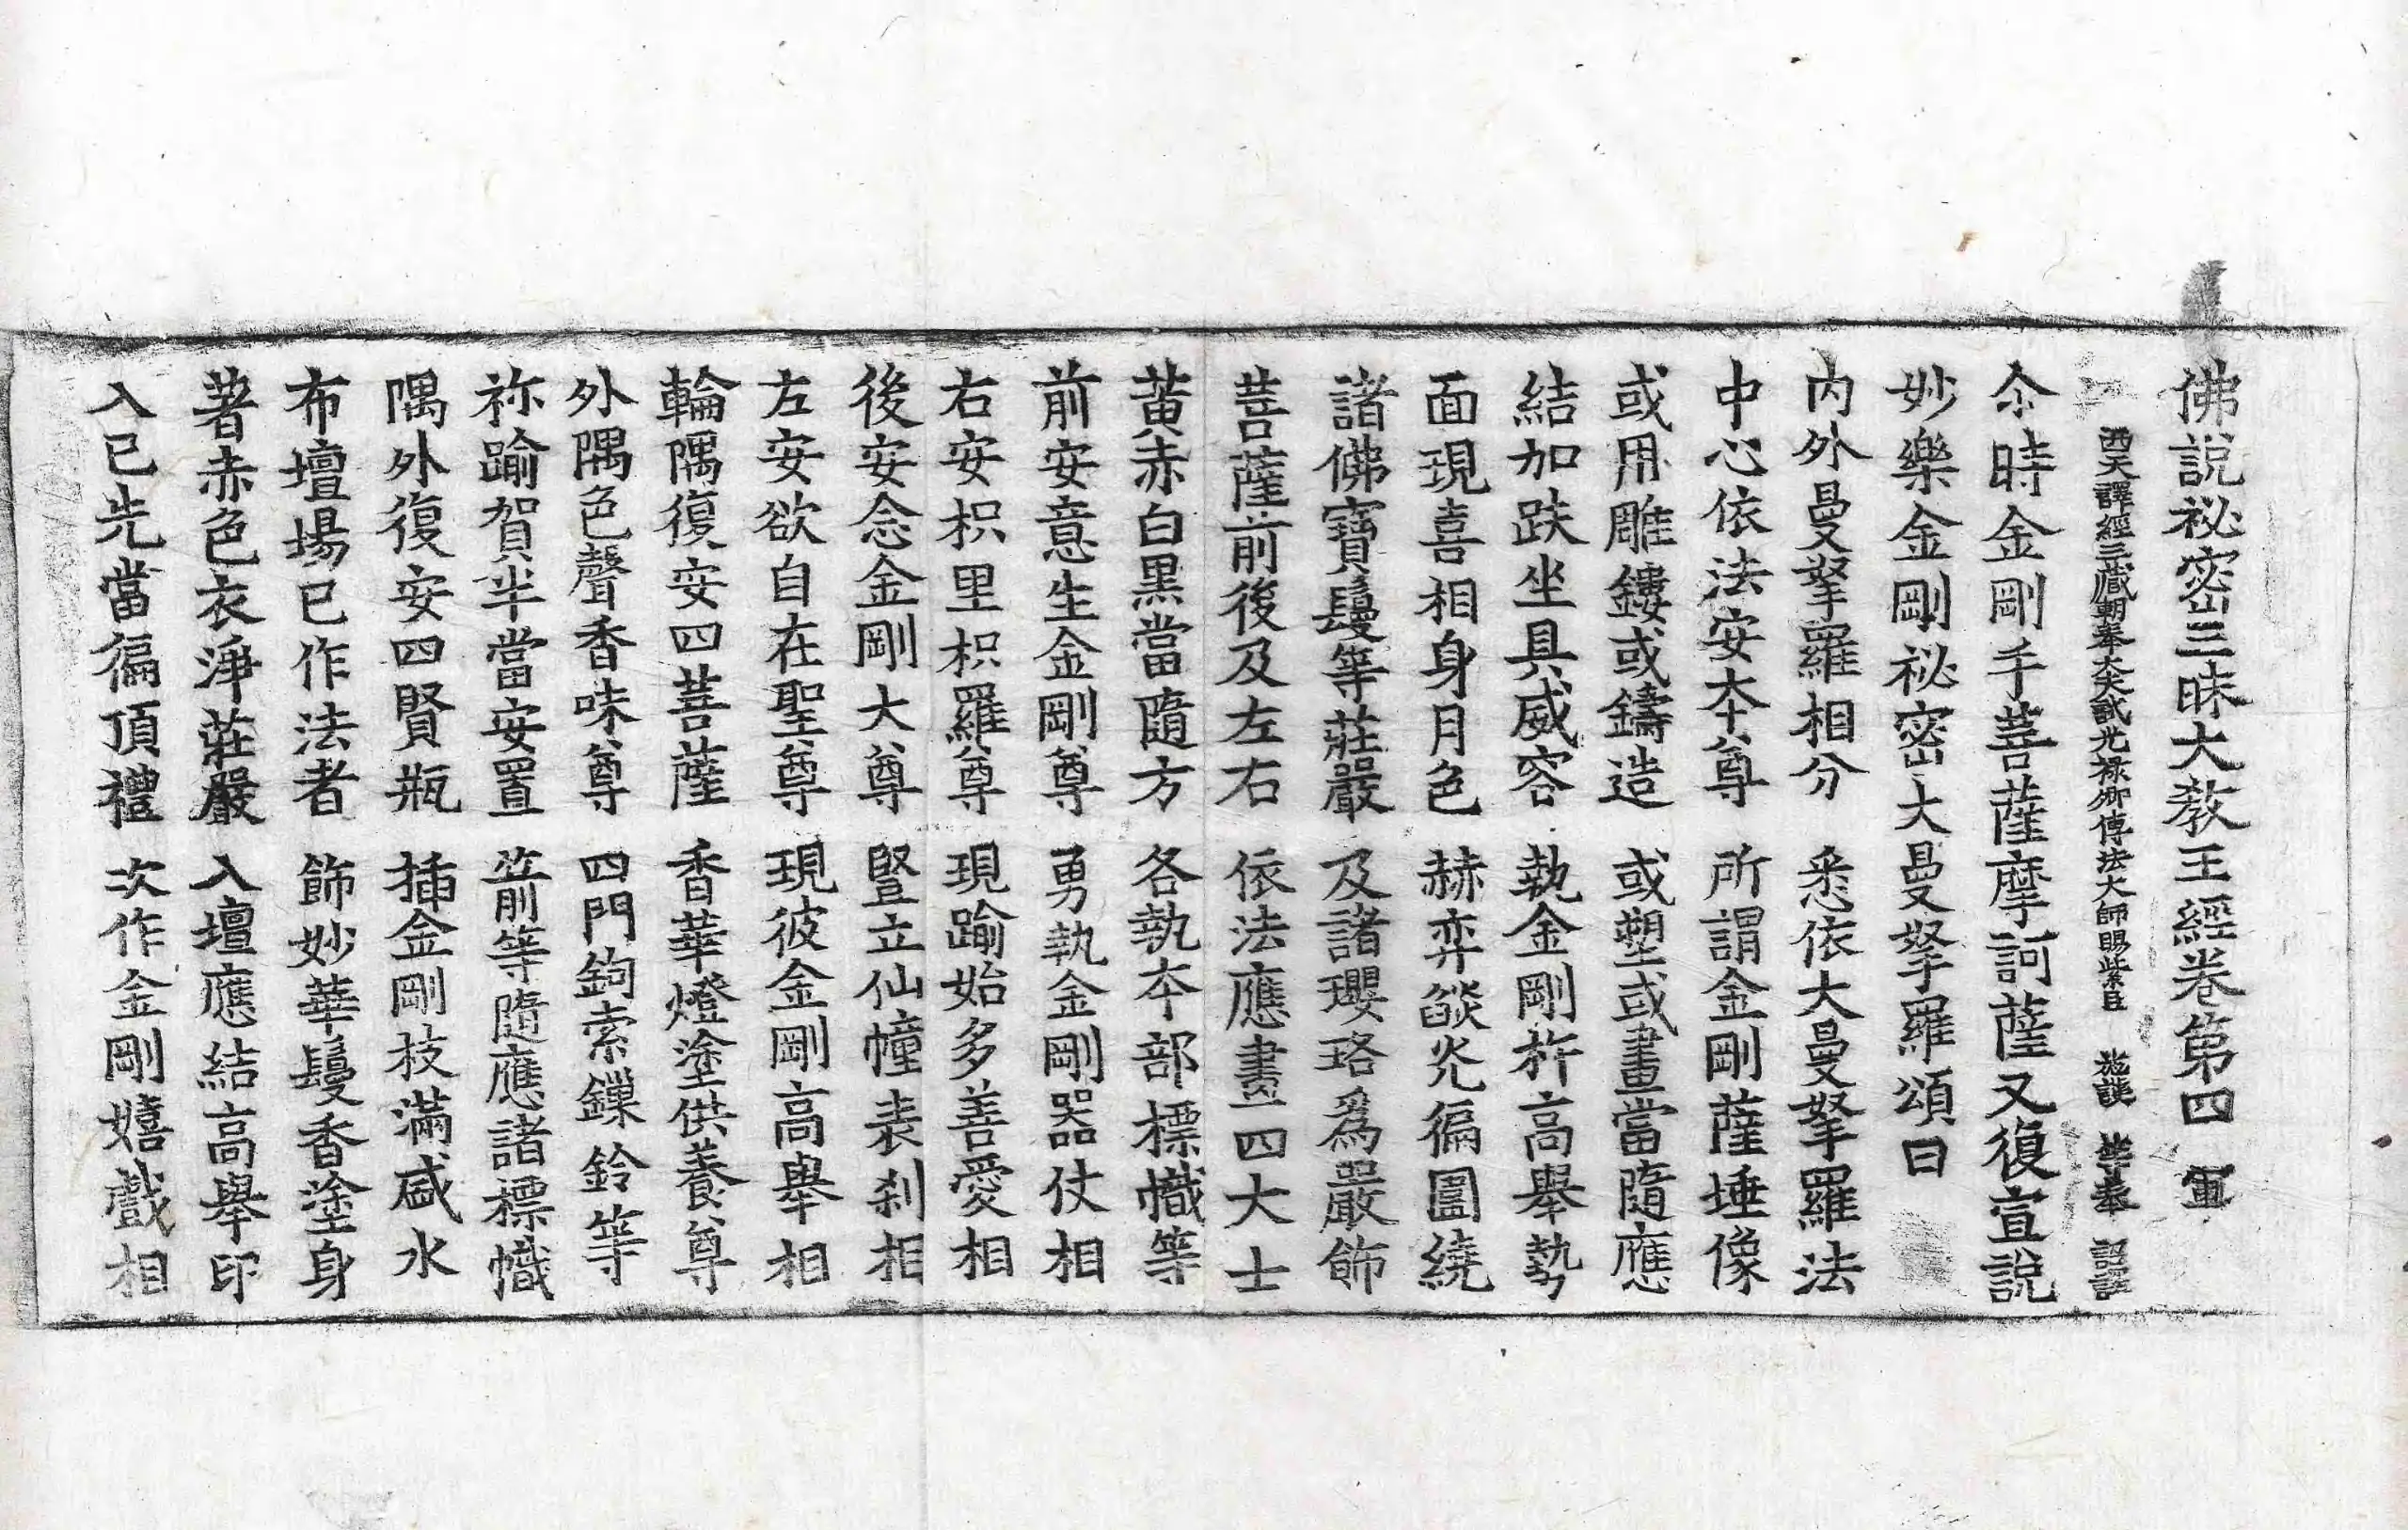 佛說祕密三昧大教王經卷第四 軍
西天譯經三藏朝奉大夫試光祿卿傳法大師賜紫臣 施護 等奉 詔譯
尒時金剛手菩薩摩訶薩又復宣說
妙樂金剛祕密大曼拏羅頌曰
內外曼拏羅相分 悉依大曼拏羅法
中心依法安本尊 所謂金剛薩埵像
或用雕鏤或鑄造 或塑或畫當隨應
結加趺坐具威容 執金剛杵高舉勢
面現喜相身月色 赫弈燄光徧圍繞
諸佛寶鬘等莊嚴 及諸瓔珞爲嚴飾
菩薩前後及左右 依法應畫四大士
黃赤白黑當隨方 各執本部標幟等
前安意生金剛尊 勇執金剛器仗相
右安枳里枳羅尊 現踰始多善愛相
後安念金剛大尊 豎立仙幢表刹相
左安欲自在聖尊 現彼金剛高舉相
輪隅復安四菩薩 香華燈塗供養尊
外隅色聲香味尊 四門鉤索鏁鈴等
祢踰賀半當安置 箭等隨應諸標幟
隅外復安四賢瓶 揷金剛枝滿盛水
布壇場已作法者 飾妙華鬘香塗身
著赤色衣淨莊嚴 入壇應結高舉印
入已先當徧頂禮 次作金剛嬉戲相